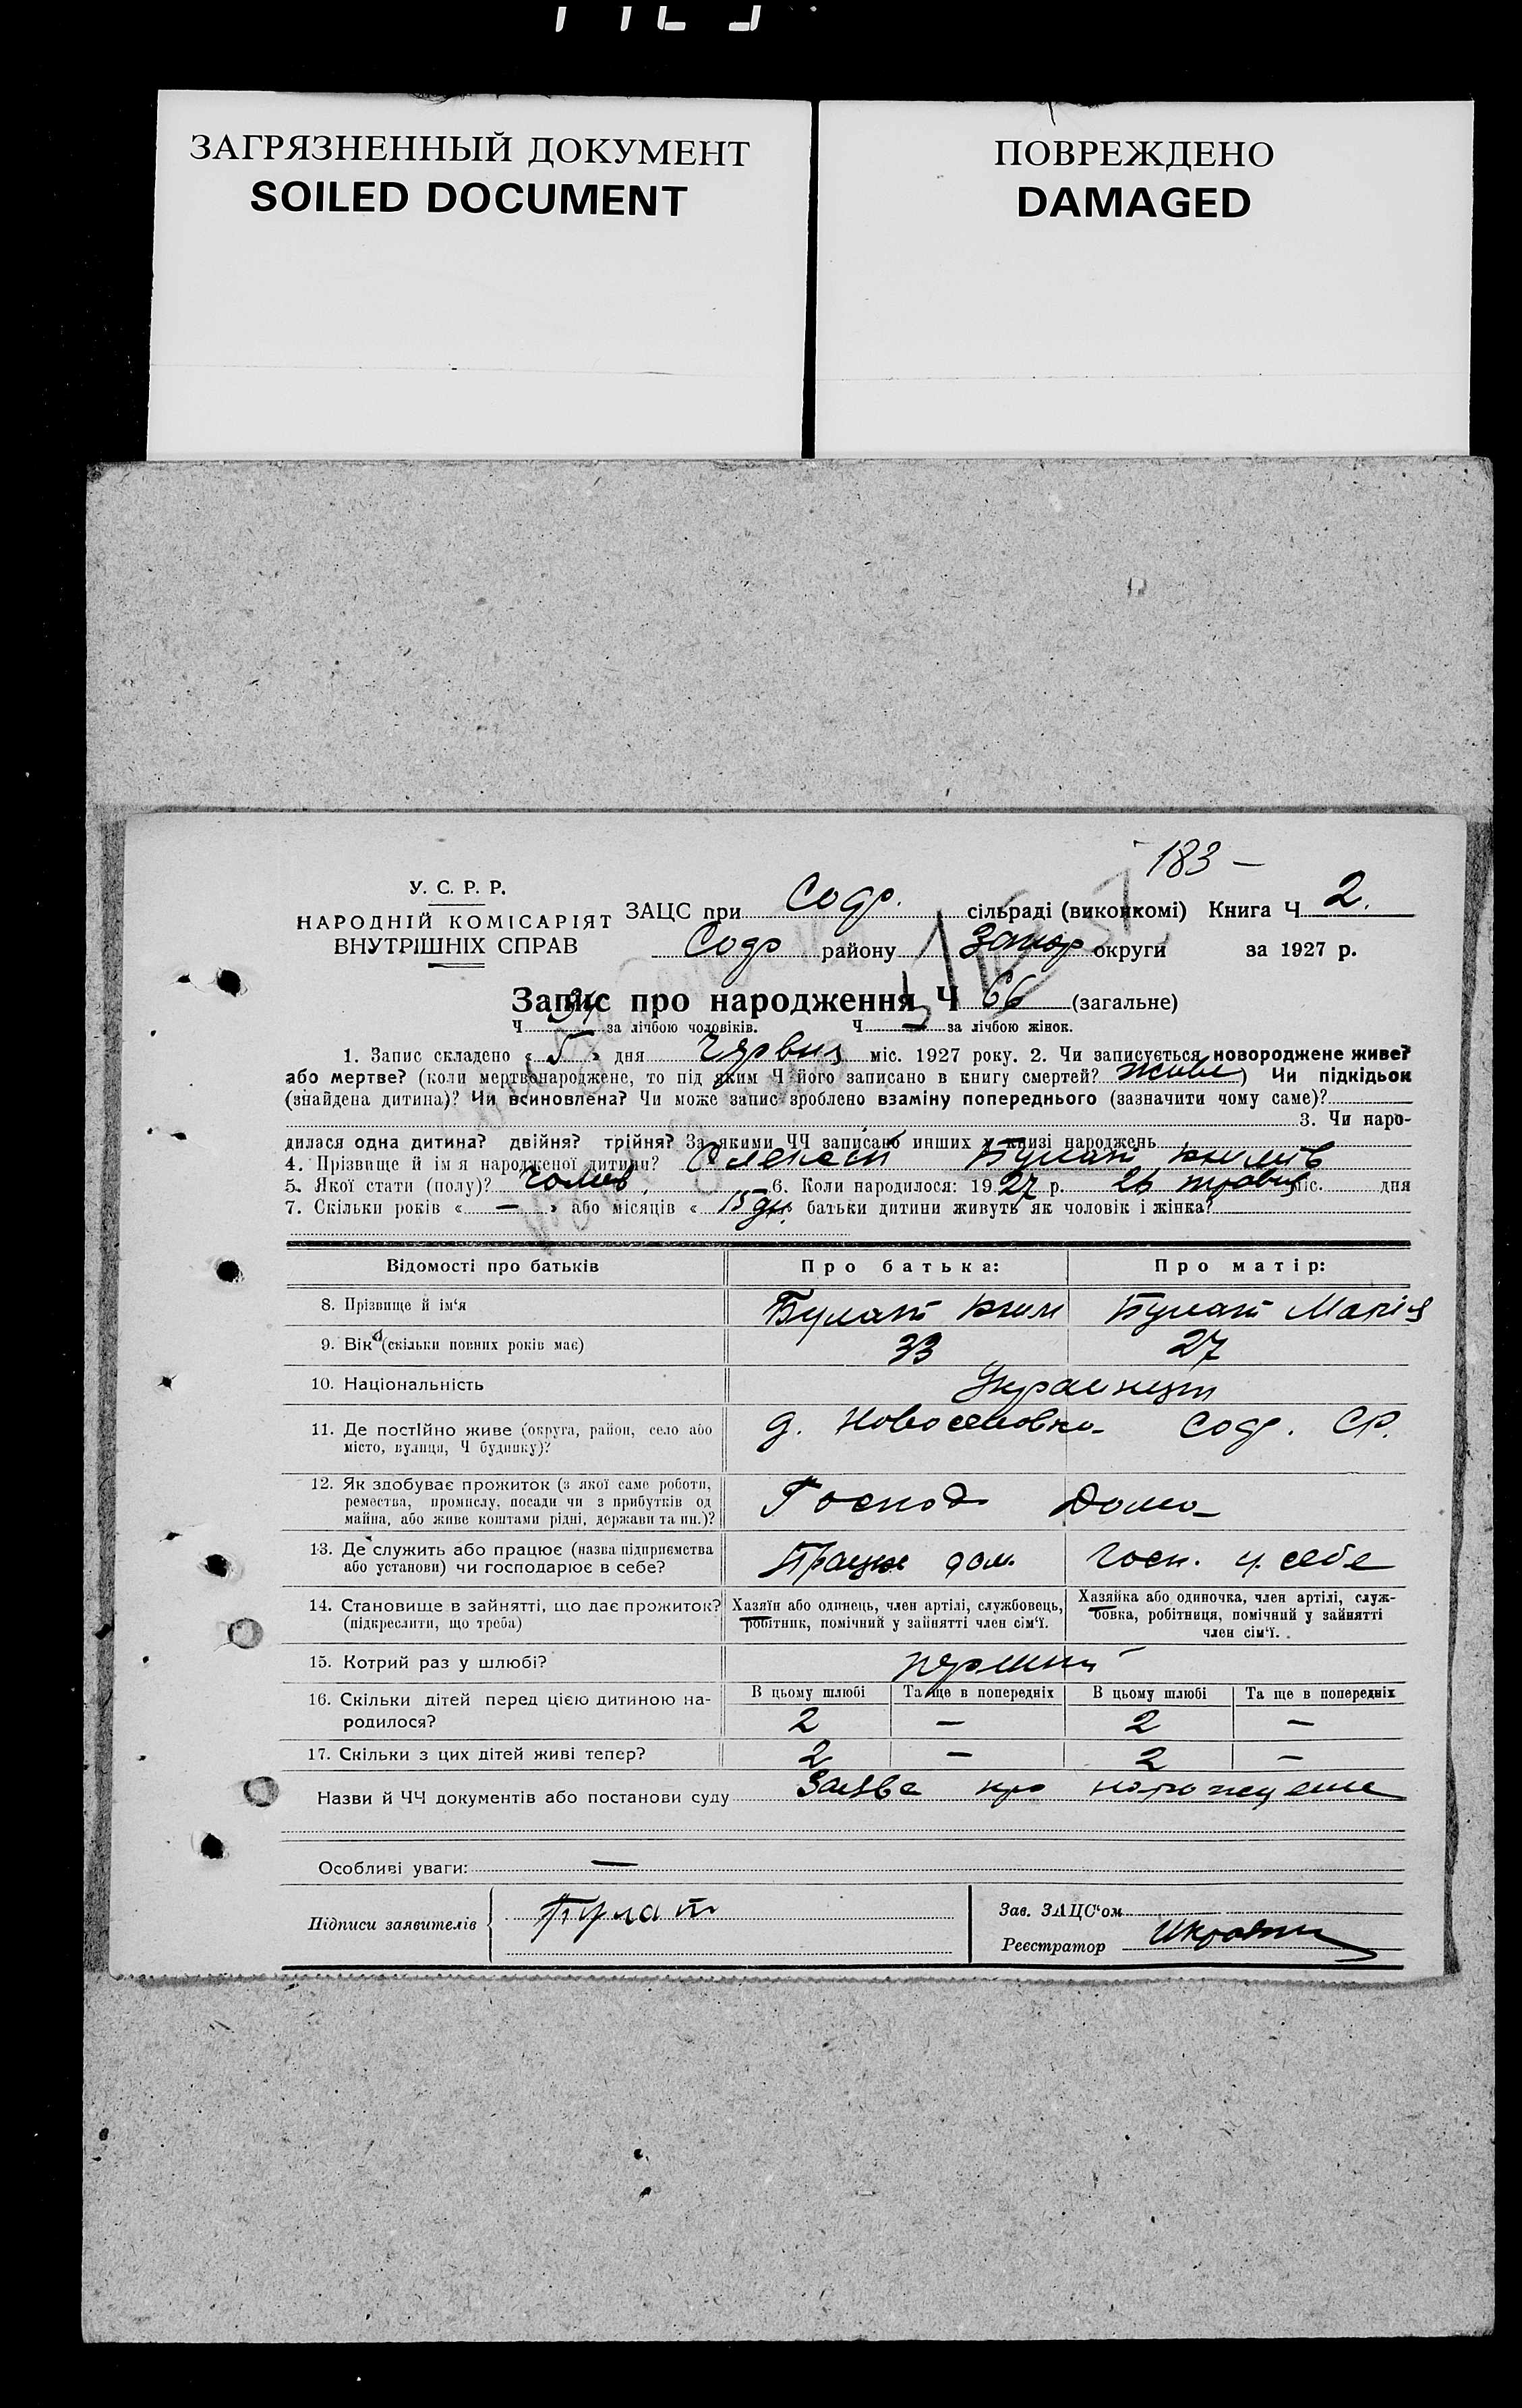 ЗАГРЯЗНЕННЫЙ ДОКУМЕНТ
SOILED DOCUMENT
ПОВРЕЖДЕНО
DAMAGED
183 –
У. С. Р. Р.
НАРОДНІЙ КОМІСАРІЯТ
ВНУТРІШНІХ СПРАВ
ЗАЦС при Софр. сільраді (виконкомі) Книга Ч 2.
Софр району Запор округи за 1927 р.
Запис про народження Ч 66 (загальне)
Ч 34 за лічбою чоловіків. Ч — за лічбою жінок.
1. Запис складено « 5 » дня Червня міс. 1927 року. 2. Чи записується новороджене живе?
або мертве? (коли мертвонароджене, то під яким Ч його записано в книгу смертей? живе) Чи підкідьок
(знайдена дитина)? Чи всиновлена? Чи може запис зроблено взаміну попереднього (зазначити чому саме)?
3. Чи наро-
дилася одна дитина? двійня? трійня? За якими ЧЧ записано инших у книзі народжень
4. Прізвище й ім я народженої дитини? Олексій Булат
5. Якої стати (полу)? чолов. 6. Коли народилося: 1927 р. 26 травня міс. дня
7. Скільки років « — » або місяців « батьки дитини живуть як чоловік і жінка?
Відомості про батьків
Про батька:
Про матір:
8. Прізвище й ім‘я
Булат
Булат Марія
9. Вік (скільки повних років має)
33
27
10. Національність
Украинци
11. Де постійно живе (округа, район, село або
місто, вулиця, Ч будинку)?
д. Новоселовка Софр. СР.
12. Як здобуває прожиток (з якої саме роботи,
ремества, промислу, посади чи з прибутків од
майна, або живе коштами рідні, держави та ин.)?
Господ
Дома
13. Де служить або працює (назва підприємства
або установи) чи господарює в себе?
Працює дом. госп. у себе
14. Становище в зайнятті, що дає прожиток?
(підкреслити, що треба)
Хазяїн або одинець, член артілі, службовець,
робітник, помічний у зайнятті член сім‘ї.
Хазяйка або одиночка, член артілі, служ-
бовка, робітниця, помічний у зайнятті
член сім‘ї.
15. Котрий раз у шлюбі?
перший
16. Скільки дітей перед цією дитиною на-
родилося?
В цьому шлюбі
Та ще в попередніх
В цьому шлюбі
Та ще в попередніх
2 — 2 —
17. Скільки з цих дітей живі тепер?
2 — 2 —
Назви й ЧЧ документів або постанови суду Заява про нарождение
Особливі уваги: —
Підписи заявителів
Булат
Зав. ЗАЦС‘ом
Реєстратор